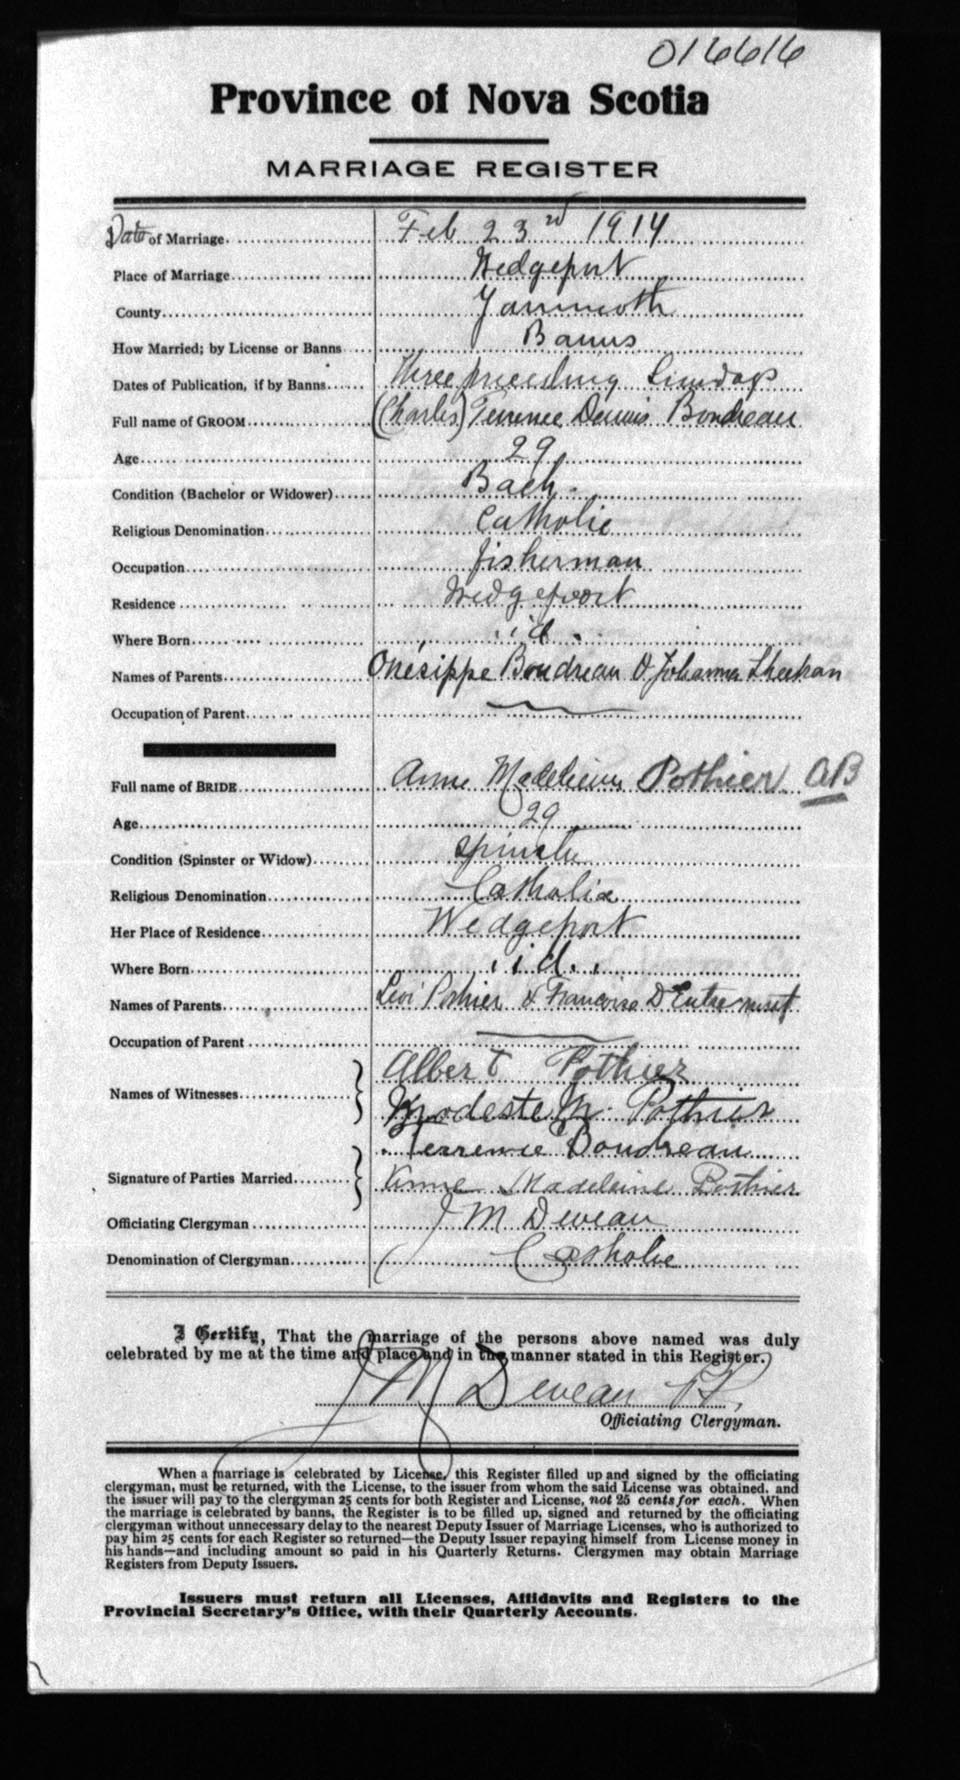 016616
Province of Nova Scotia
MARRIAGE REGISTER
Date of Marriage Feb 23rd 1914
Place of Marriage Wedgeport
County Yarmouth
How Married; by License or Banns Banns
Dates of Publication, if by Banns Three preceding Sundays
Full name of GROOM (Charles) Terrence Dennis Boudreau
Age 29
Condition (Bachelor or Widower) Bach.
Religious Denomination Catholic
Occupation fisherman
Residence Wedgeport
Where Born .id.
Names of Parents Onésippe Boudreau & Johanna Sheehan
Occupation of Parent
Full name of BRIDE Anne Madeleine Pothier AB
Age 29
Condition (Spinster or Widow) Spinster
Religious Denomination Catholic
Her Place of Residence Wedgeport
Where Born .id.
Names of Parents Levi Pothier & Francoise D'Entremont
Occupation of Parent
Names of Witnesses Albert Pothier
Modeste M. Pothier
Signature of Parties Married Terrence Boudreau
Anne Madeleine Pothier
Officiating Clergyman J M Deveau
Denomination of Clergyman Catholic
I Certify, That the marriage of the persons above named was duly
celebrated by me at the time and place and in the manner stated in this Register.
J M Deveau
Officiating Clergyman.
When a marriage is celebrated by License, this Register filled up and signed by the officiating
clergyman, must be returned, with the License, to the issuer from whom the said License was obtained, and
the issuer will pay to the clergyman 25 cents for both Register and License, not 25 cents for each. When
the marriage is celebrated by banns, the Register is to be filled up, signed and returned by the officiating
clergyman without unnecessary delay to the nearest Deputy Issuer of Marriage Licenses, who is authorized to
pay him 25 cents for each Register so returned—the Deputy Issuer repaying himself from License money in
his hands—and including amount so paid in his Quarterly Returns. Clergymen may obtain Marriage
Registers from Deputy Issuers.
Issuers must return all Licenses, Affidavits and Registers to the
Provincial Secretary's Office, with their Quarterly Accounts.